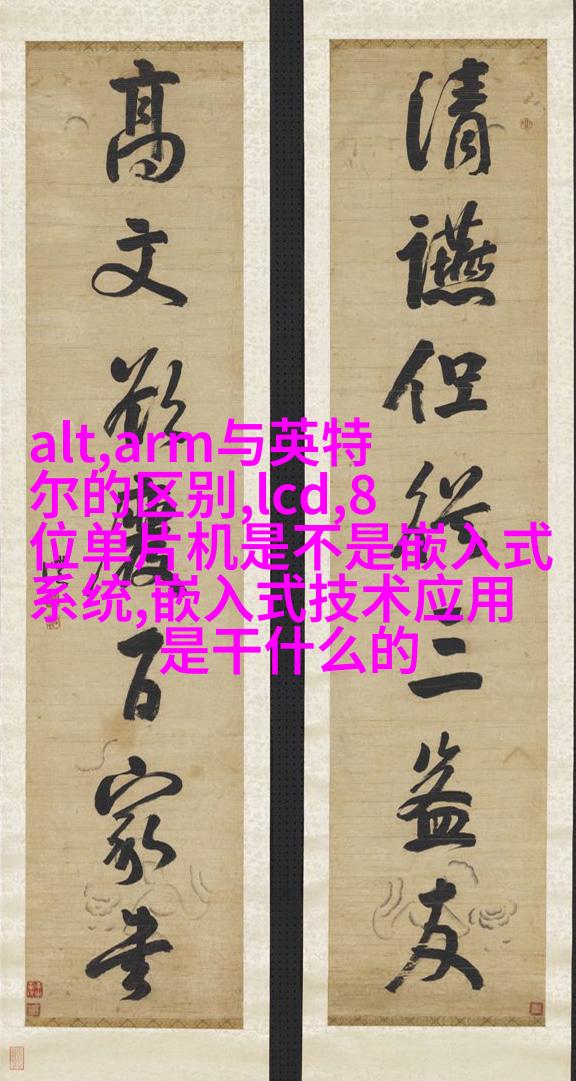 清讌但從三益友
高文欲廢百家書
alt,arm与英特
尔的区别,lcd,8
位单片机是不是嵌入式
系统,嵌入式技术应用
是干什么的